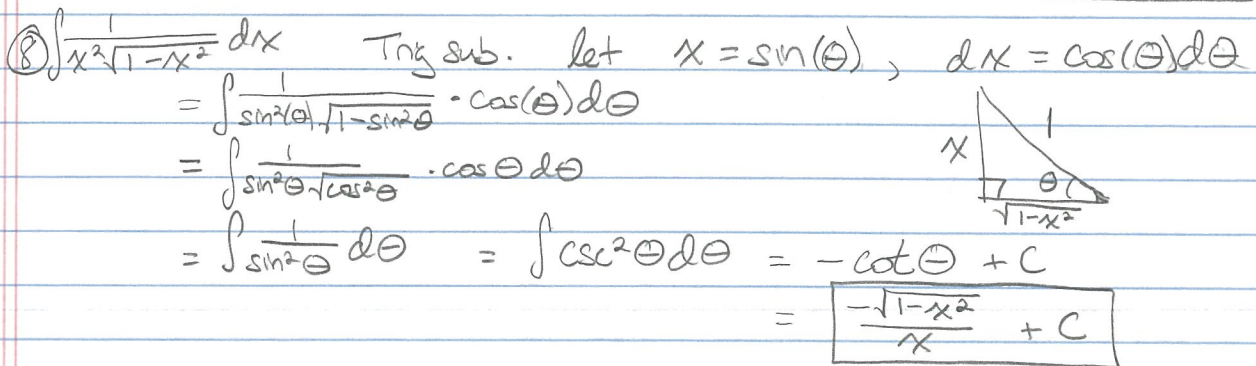 ⑧ ∫ 1/(x²√(1-x²)) dx Trig sub. let x = sin(θ), dx = cos(θ)dθ
= ∫ 1/(sin²(θ)√(1-sin²θ)) · cos(θ)dθ
x 1 θ √(1-x²)
= ∫ 1/(sin²θ√(cos²θ)) · cosθdθ
= ∫ 1/(sin²θ) dθ = ∫ csc²θdθ = -cotθ + C
= -√(1-x²)/x + C